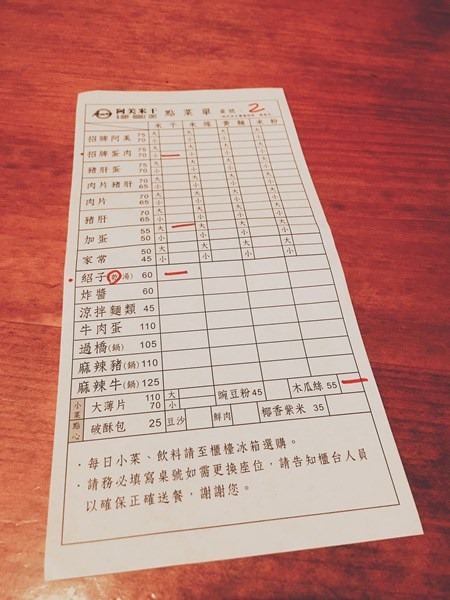 阿美米干 點菜單 桌號 2
米干 米線 黃麵 米粉
招牌阿美 75 70 大 小 大 小 大 小 大 小
招牌蛋肉 75 70 大 小 大 小 大 小 大 小
豬肝蛋 75 70 大 小 大 小 大 小 大 小
肉片豬肝 70 65 大 小 大 小 大 小 大 小
肉片 70 65 大 小 大 小 大 小 大 小
豬肝 70 65 大 小 大 小 大 小 大 小
加蛋 55 50 大 小 大 小 大 小 大 小
家常 50 45 大 小 大 小 大 小 大 小
紹子(乾湯) 60
炸醬 60
涼拌麵類 45
牛肉蛋 110
過橋(鍋) 105
麻辣豬(鍋) 110
麻辣牛(鍋) 125
小菜點心 大薄片 110 70 大 小 豌豆粉 45 木瓜絲 55
破酥包 25 豆沙 鮮肉 椰香紫米 35
·每日小菜、飲料請至櫃檯冰箱選購。
·請務必填寫桌號如需更換座位,請告知櫃台人員
以確保正確送餐,謝謝您。